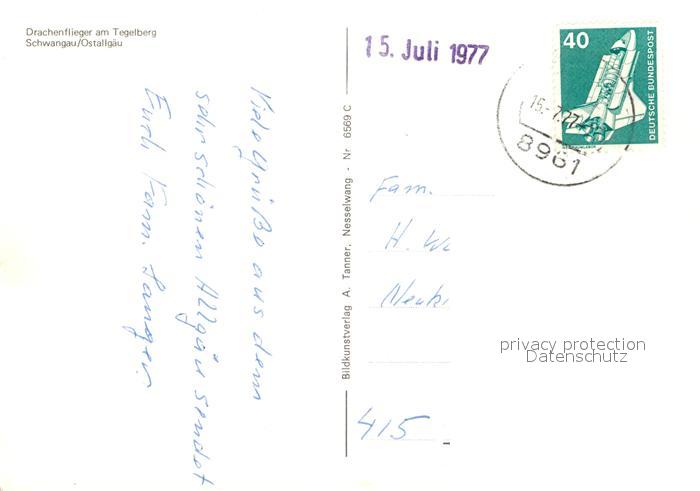 Drachenflieger am Tegelberg
Schwangau/Ostallgäu
15. Juli 1977
40
DEUTSCHE BUNDESPOST
15.-7.77
8961
Viele Grüße aus dem
sehr schönen Allgäu sendet
Euch Fam. Langer
Bildkunstverlag A. Tanner, Nesselwang - Nr 6569 C
Fam.
H. We
Neuki
415
privacy protection
Datenschutz